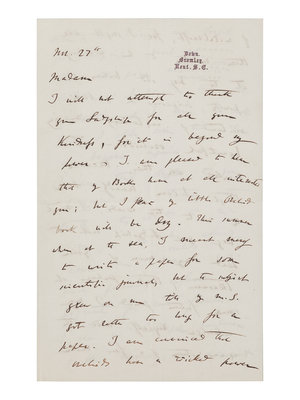 Nov. 27th
Down.
Bromley.
Kent. S.E.
Madam
I will not attempt to thank
your Ladyship for all your
kindness, for it is beyond my
power. I am pleased to hear
that my Books have at all interested
you; but I fear my little Orchid
book will be dry. This summer
when at the sea, I meant merely
to write a paper for some
scientific journal, but the subject
grew on me till my M.S.
got rather too long for a
paper. I am convinced that
orchids have a wicked power